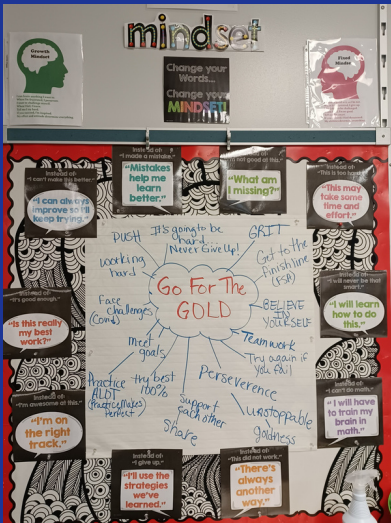 mindset
Growth
Mindset
Change your
Words...
Change your
MINDSET!
Fixed
Mindset
Instead of:
"I can't make this better."
"I can always
improve so I'll
keep trying."
Instead of:
"I made a mistake."
"Mistakes
help me
learn
better."
Instead of:
"I'm not good at this."
"What am
I missing?"
Instead of:
"This is too hard."
"This may
take some
time and
effort."
Instead of:
"It's good enough."
"Is this really
my best
work?"
Instead of:
"I will never be that
smart."
"I will learn
how to do
this."
Instead of:
"I'm awesome at this."
"I'm on
the right
track."
Instead of:
"I can't do math."
"I will have
to train my
brain in
math."
Instead of:
"I give up."
"I'll use the
strategies
we've
learned."
Instead of:
"This did not work."
"There's
always
another
way."
Go For The
GOLD
PUSH
It's going to be
hard...
Never Give Up!
GRIT
working
hard
Get to the
finish line
(PSA)
Face
challenges
BELIEVE
IN
YOURSELF
meet
goals
Teamwork
Try again if
you fail
Practice
ALOT
(Practice Makes
Perfect)
try best
100%
Support
each other
Share
Perseverence
unstoppable
goldness